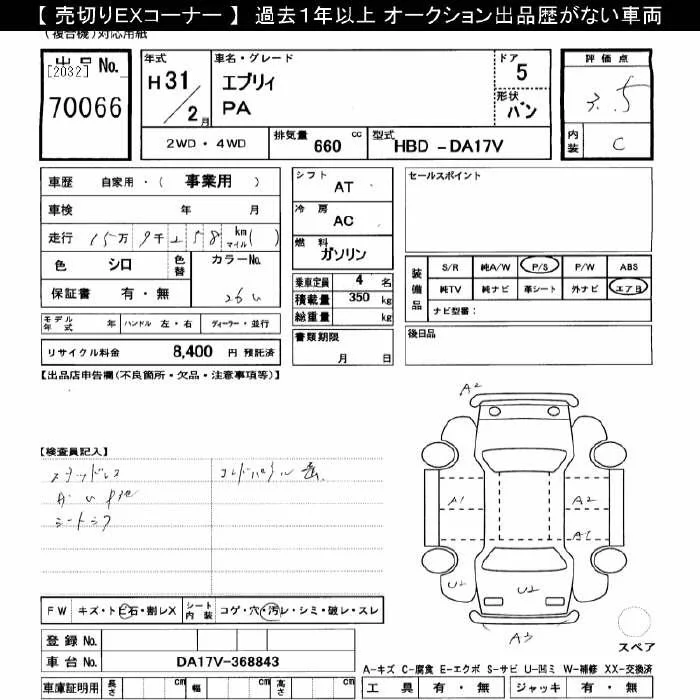 【 売切りEXコーナー 】 過去１年以上 オークション出品歴がない車両
(複合機) 対応用紙
出品 No.
[2032]
70066
年式
H 31 / 2 月
車名・グレード
エブリィ
PA
ドア
5
形状
バン
評価点
3.5
内装
C
2WD ・ 4WD
排気量 660 cc
型式 HBD - DA17V
車歴 自家用 ・ ( 事業用 )
車検 年 月
走行 15万 9千 2 5 8 km マイル ( )
色 シロ
色替
カラーNo.
26U
保証書 有 ・ 無
モデル年式 年
ハンドル 左・右
ディーラー・並行
リサイクル料金 8,400 円 預託済
シフト
AT
冷房
AC
燃料
ガソリン
乗車定員 4 名
積載量 350 kg
総重量 kg
書類期限
月 日
セールスポイント
装備品
S/R 純A/W P/S P/W ABS
純TV 純ナビ 革シート 外ナビ エアB
ナビ型番：
後日品
【出品店申告欄(不良箇所・欠品・注意事項等)】
【検査員記入】
スタッドレス
シートシワ
A2
A1
A2
A1
U2
U2
A3
スペア
FW キズ・トビ石・割レX
シート内装 コゲ・穴・汚レ・シミ・破レ・スレ
登録 No.
車台 No. DA17V-368843
車庫証明用 長さ cm 幅 cm 高さ cm
A-キズ C-腐食 E-エクボ S-サビ U-凹ミ W-補修 XX-交換済
工具 有 ・ 無 ジャッキ 有 ・ 無